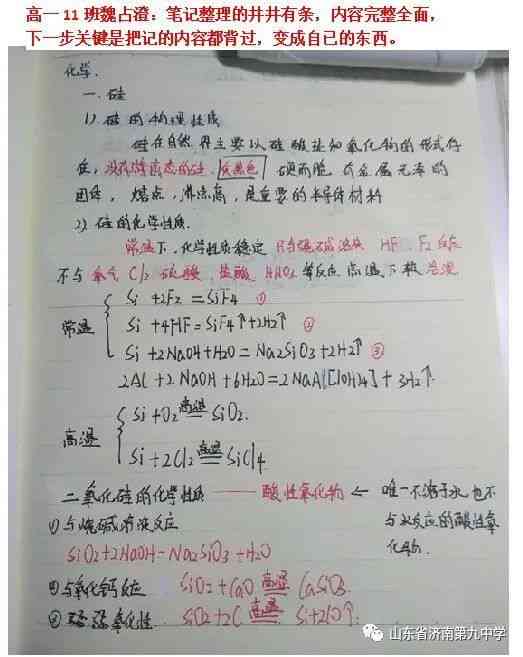 高一11班魏占澄：笔记整理的井井有条，内容完整全面，
下一步关键是把记的内容都背过，变成自己的东西。
化学.
一. 硅
1) 硅的物理性质
硅在自然界主要以硅酸盐和氧化物的形式存
在，没有游离态的硅. 灰黑色 硬而脆 有金属光泽的
固体， 熔点，沸点高，是重要的半导体材料
2) 硅的化学性质.
常温下，化学性质稳定 只与强碱溶液 HF. F2 反应
不与氧气 Cl2 硫酸、盐酸 HNO3 等反应 高温下较活泼
常温
Si + 2F2 = SiF4 ①
Si + 4HF = SiF4↑ + 2H2↑ ②
Si + 2NaOH + H2O = Na2SiO3 + 2H2↑ ③
2Al + 2NaOH + 6H2O = 2NaAl[(OH)4] + 3H2↑
高温
Si + O2 高温 SiO2.
Si + 2Cl2 高温 SiCl4
二氧化硅的化学性质 —— 酸性氧化物 ← 唯一不溶于水也不
与水反应的酸性氧
化物.
① 与烧碱溶液反应
SiO2 + 2NaOH = Na2SiO3 + H2O
② 与氧化钙反应 SiO2 + CaO 高温 CaSiO3.
③ 弱氧化性. SiO2 + 2C 高温 Si + 2CO↑.
山东省济南第九中学